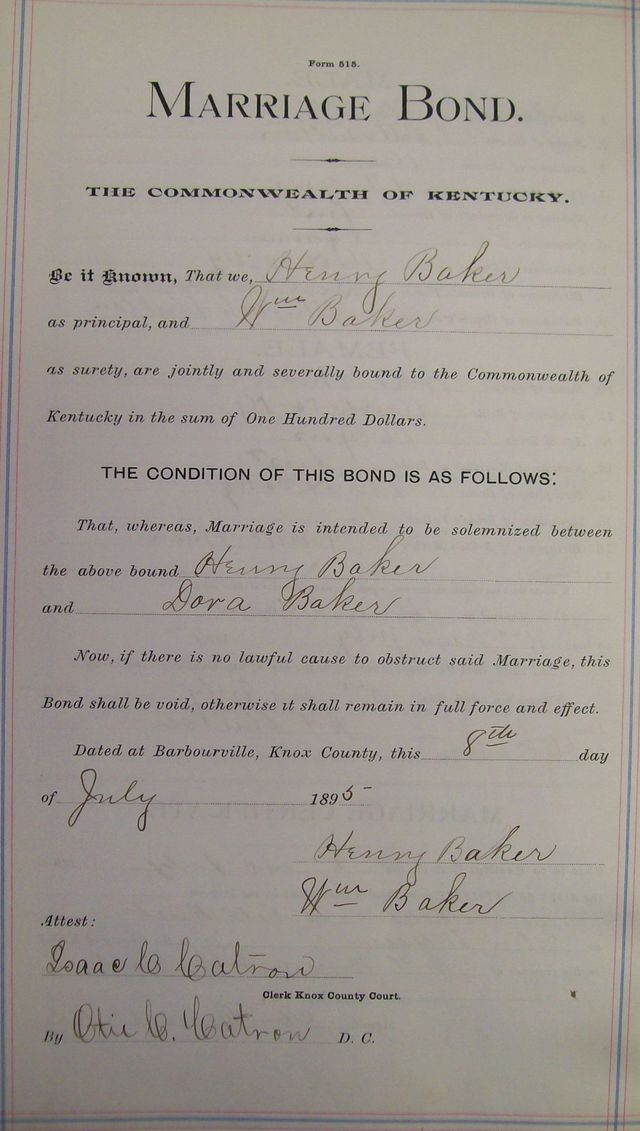 Form 515.
MARRIAGE BOND.
THE COMMONWEALTH OF KENTUCKY.
Be it Known, That we, Henry Baker
as principal, and Wm Baker
as surety, are jointly and severally bound to the Commonwealth of
Kentucky in the sum of One Hundred Dollars.
THE CONDITION OF THIS BOND IS AS FOLLOWS:
That, whereas, Marriage is intended to be solemnized between
the above bound Henry Baker
and Dora Baker
Now, if there is no lawful cause to obstruct said Marriage, this
Bond shall be void, otherwise it shall remain in full force and effect.
Dated at Barbourville, Knox County, this 8th day
of July 1895
Henry Baker
Wm Baker
Attest:
Isaac C Catron
Clerk Knox County Court.
By C. Catron D. C.